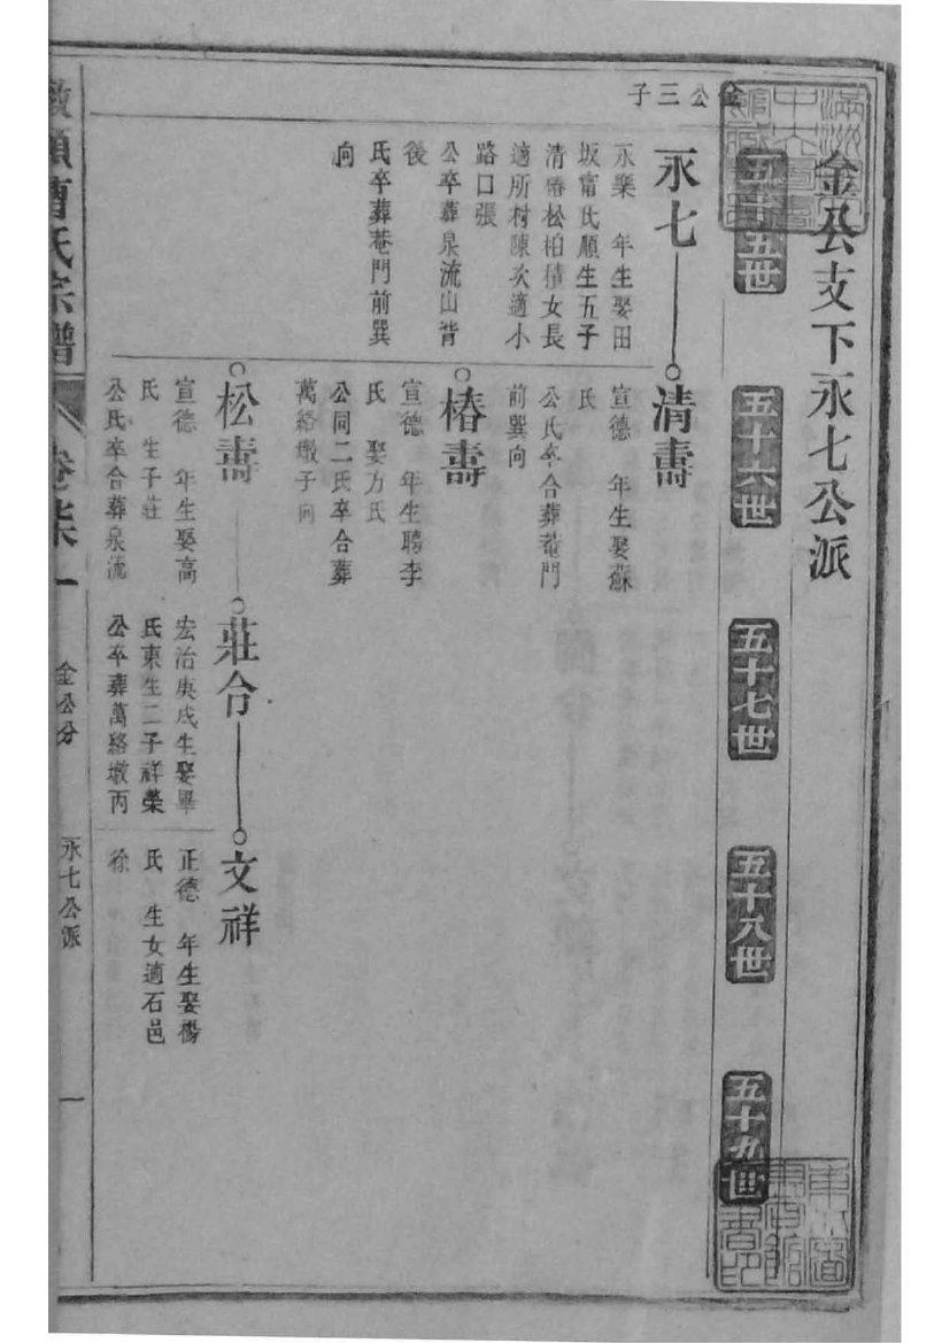 金公支下永七公派
五十五世
五十六世
五十七世
五十八世
五十九世
金公三子
永七
永樂　年生娶田
坂甯氏順生五子
清椿松柏積女長
適所村陳次適小
路口張
公卒葬泉流山背
後
氏卒葬菴門前巽
向
清壽
宣德　年生娶蘇
氏
公氏卒合葬菴門
前巽向
椿壽
宣德　年生聘李
氏　娶方氏
公同二氏卒合葬
萬絡墩子向
松壽
宣德　年生娶高
氏　生子莊
公氏卒合葬泉流
莊合
宏治庚戌生娶畢
氏東生二子祥榮
公卒葬萬絡墩丙
文祥
正德　年生娶楊
氏　生女適石邑
徐
曹氏宗譜
卷柒一
金公分
永七公派
一